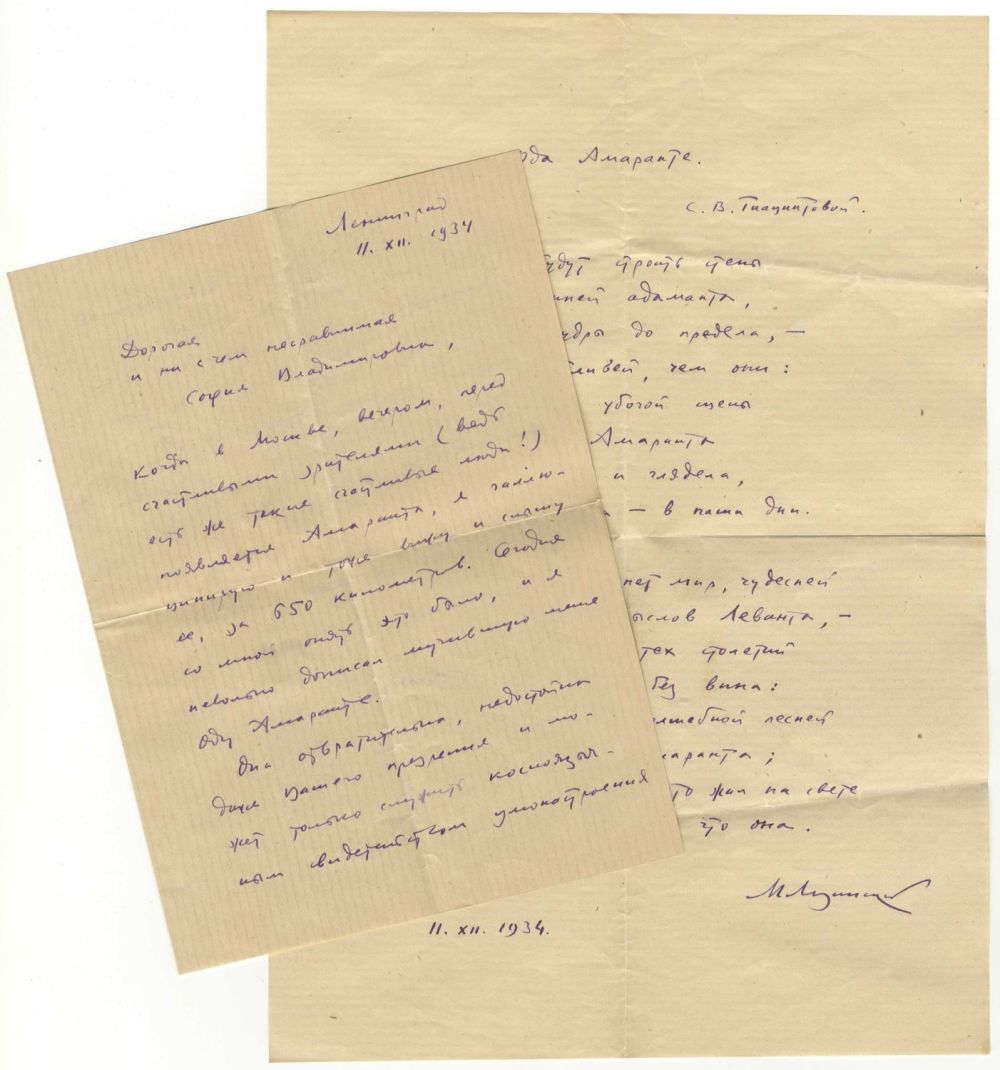 Ленинград
11. XII. 1934
Дорогая
и ни с чем несравнимая
София Владимировна,
Когда в Москве, вечером, перед
счастливыми зрителями (ведь
есть же такие счастливые люди!)
появляется Амаранта, я галлю-
цинирую и тоже вижу и слышу
ее, за 650 километров. Сегодня
со мной опять это было, и я
невольно дописал мучившую меня
Оду Амаранте.
Она отвратительна, недостойна
даже Вашего презрения и мо-
жет только служить косноязыч-
ным свидетельством умонастроения
Ода Амаранте.
С. В. Гиацинтовой.
будут строить стены
адаманта,
мудры до предела, –
чем они:
убогой сцены
Амаранты
и глядела,
– в наши дни.
мир, чудесней
Леванта, –
тех столетий
без вина:
волшебной песней
Амаранта;
кто жил на свете
что она.
МЛозинский
11. XII. 1934.